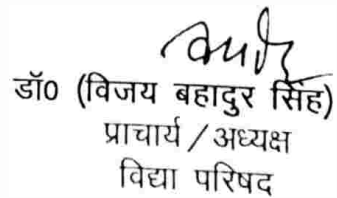 डॉ0 (विजय बहादुर सिंह)
प्राचार्य / अध्यक्ष
विद्या परिषद